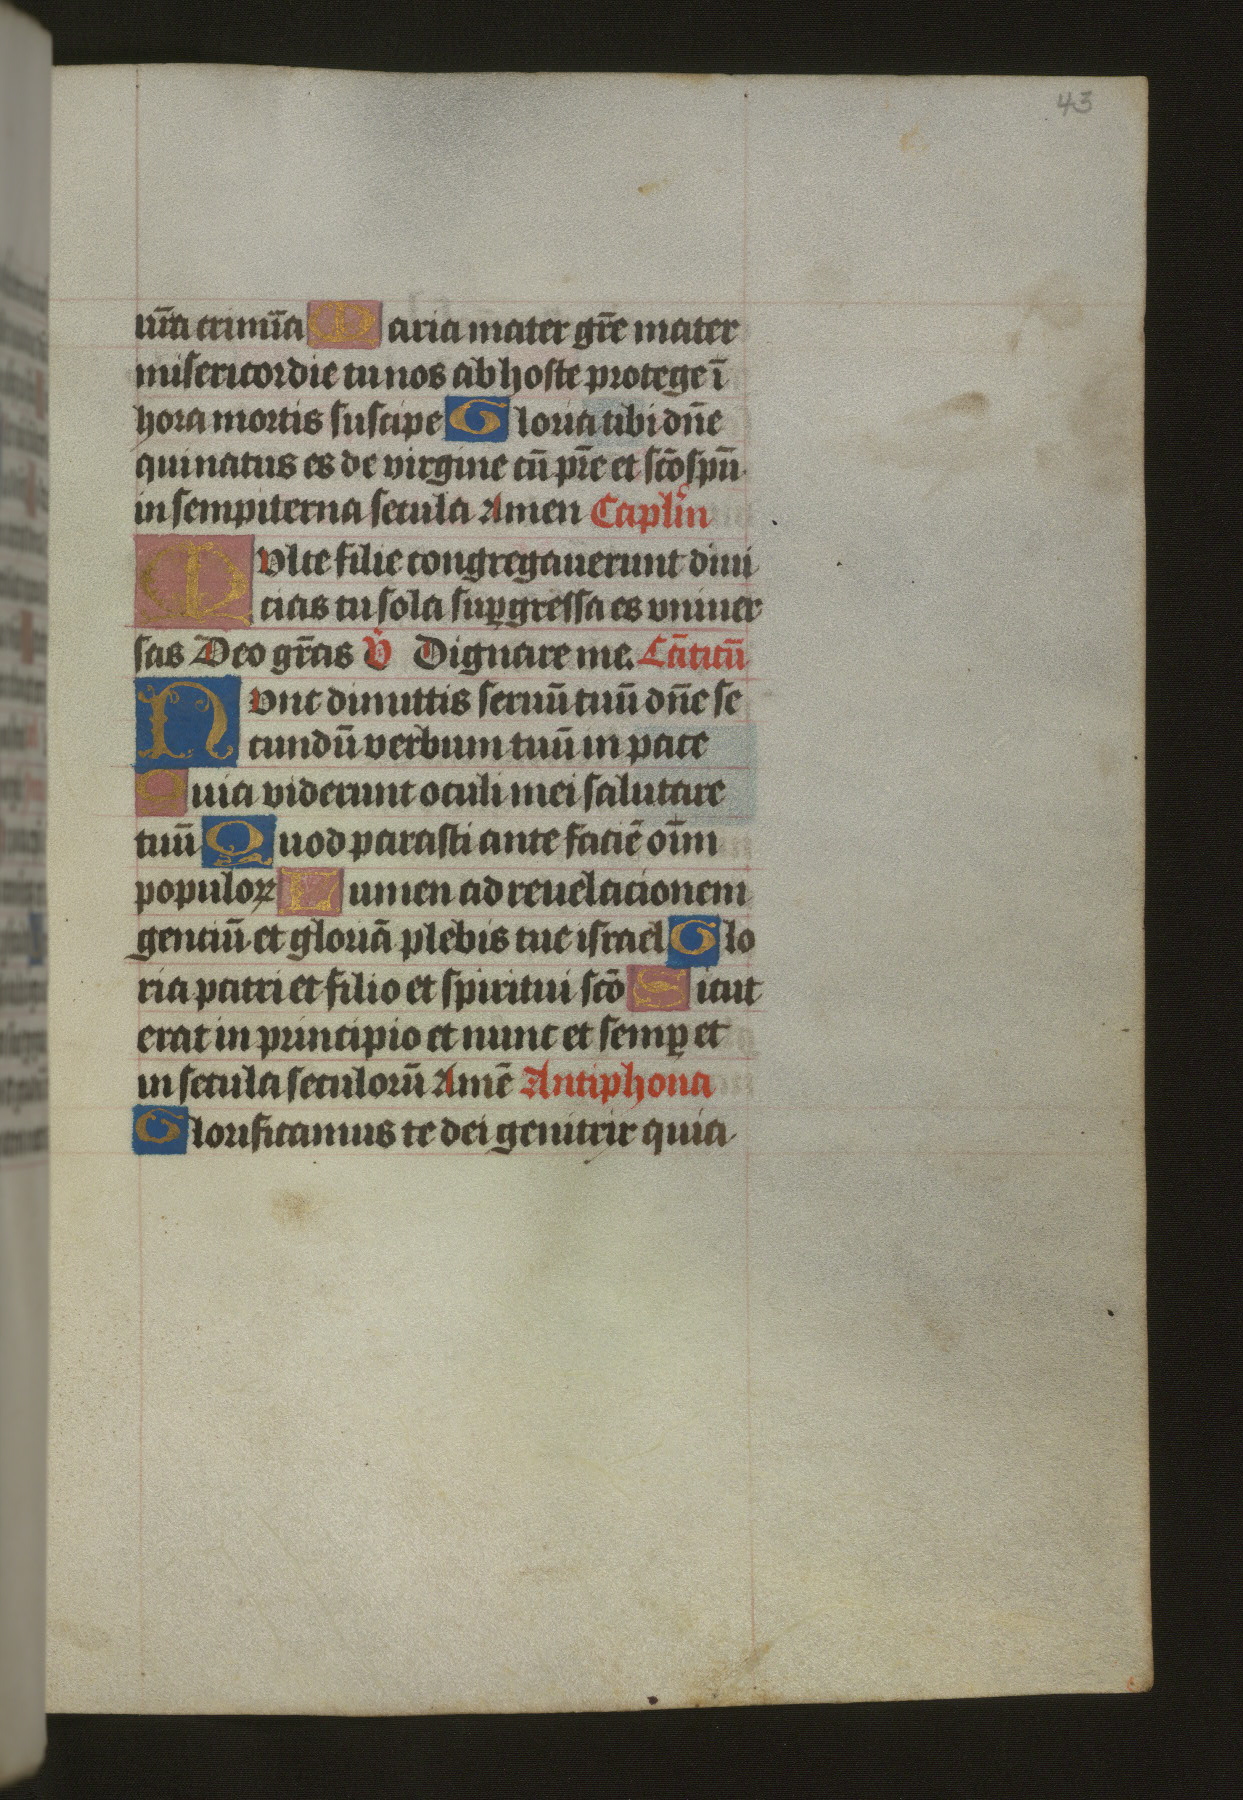 43
nr̄a crimīa Maria mater gr̄e mater
misericordie tu nos ab hoste protege ī
hora mortis suscipe Gloria tibi dn̄e
qui natus es de virgine cū pr̄e et sc̄o spū
in sempiterna secula Amen Capl'm
Multe filie congregauerunt diui
cias tu sola suꝑgressa es vniuer
sas Deo gr̄as V̄ Dignare me. Cāticū
Nunc dimittis seruū tuū dn̄e se
cundū verbum tuū in pace
Quia viderunt oculi mei salutare
tuū Quod parasti ante faciē oīm
populoꝝ Lumen ad reuelacionem
genciū et gloriā plebis tue israel Glo
ria patri et filio et spiritui sc̄o Sicut
erat in principio et nunc et semꝑ et
in secula seculorū Amē Antiphona
Glorificamus te dei genitrix quia